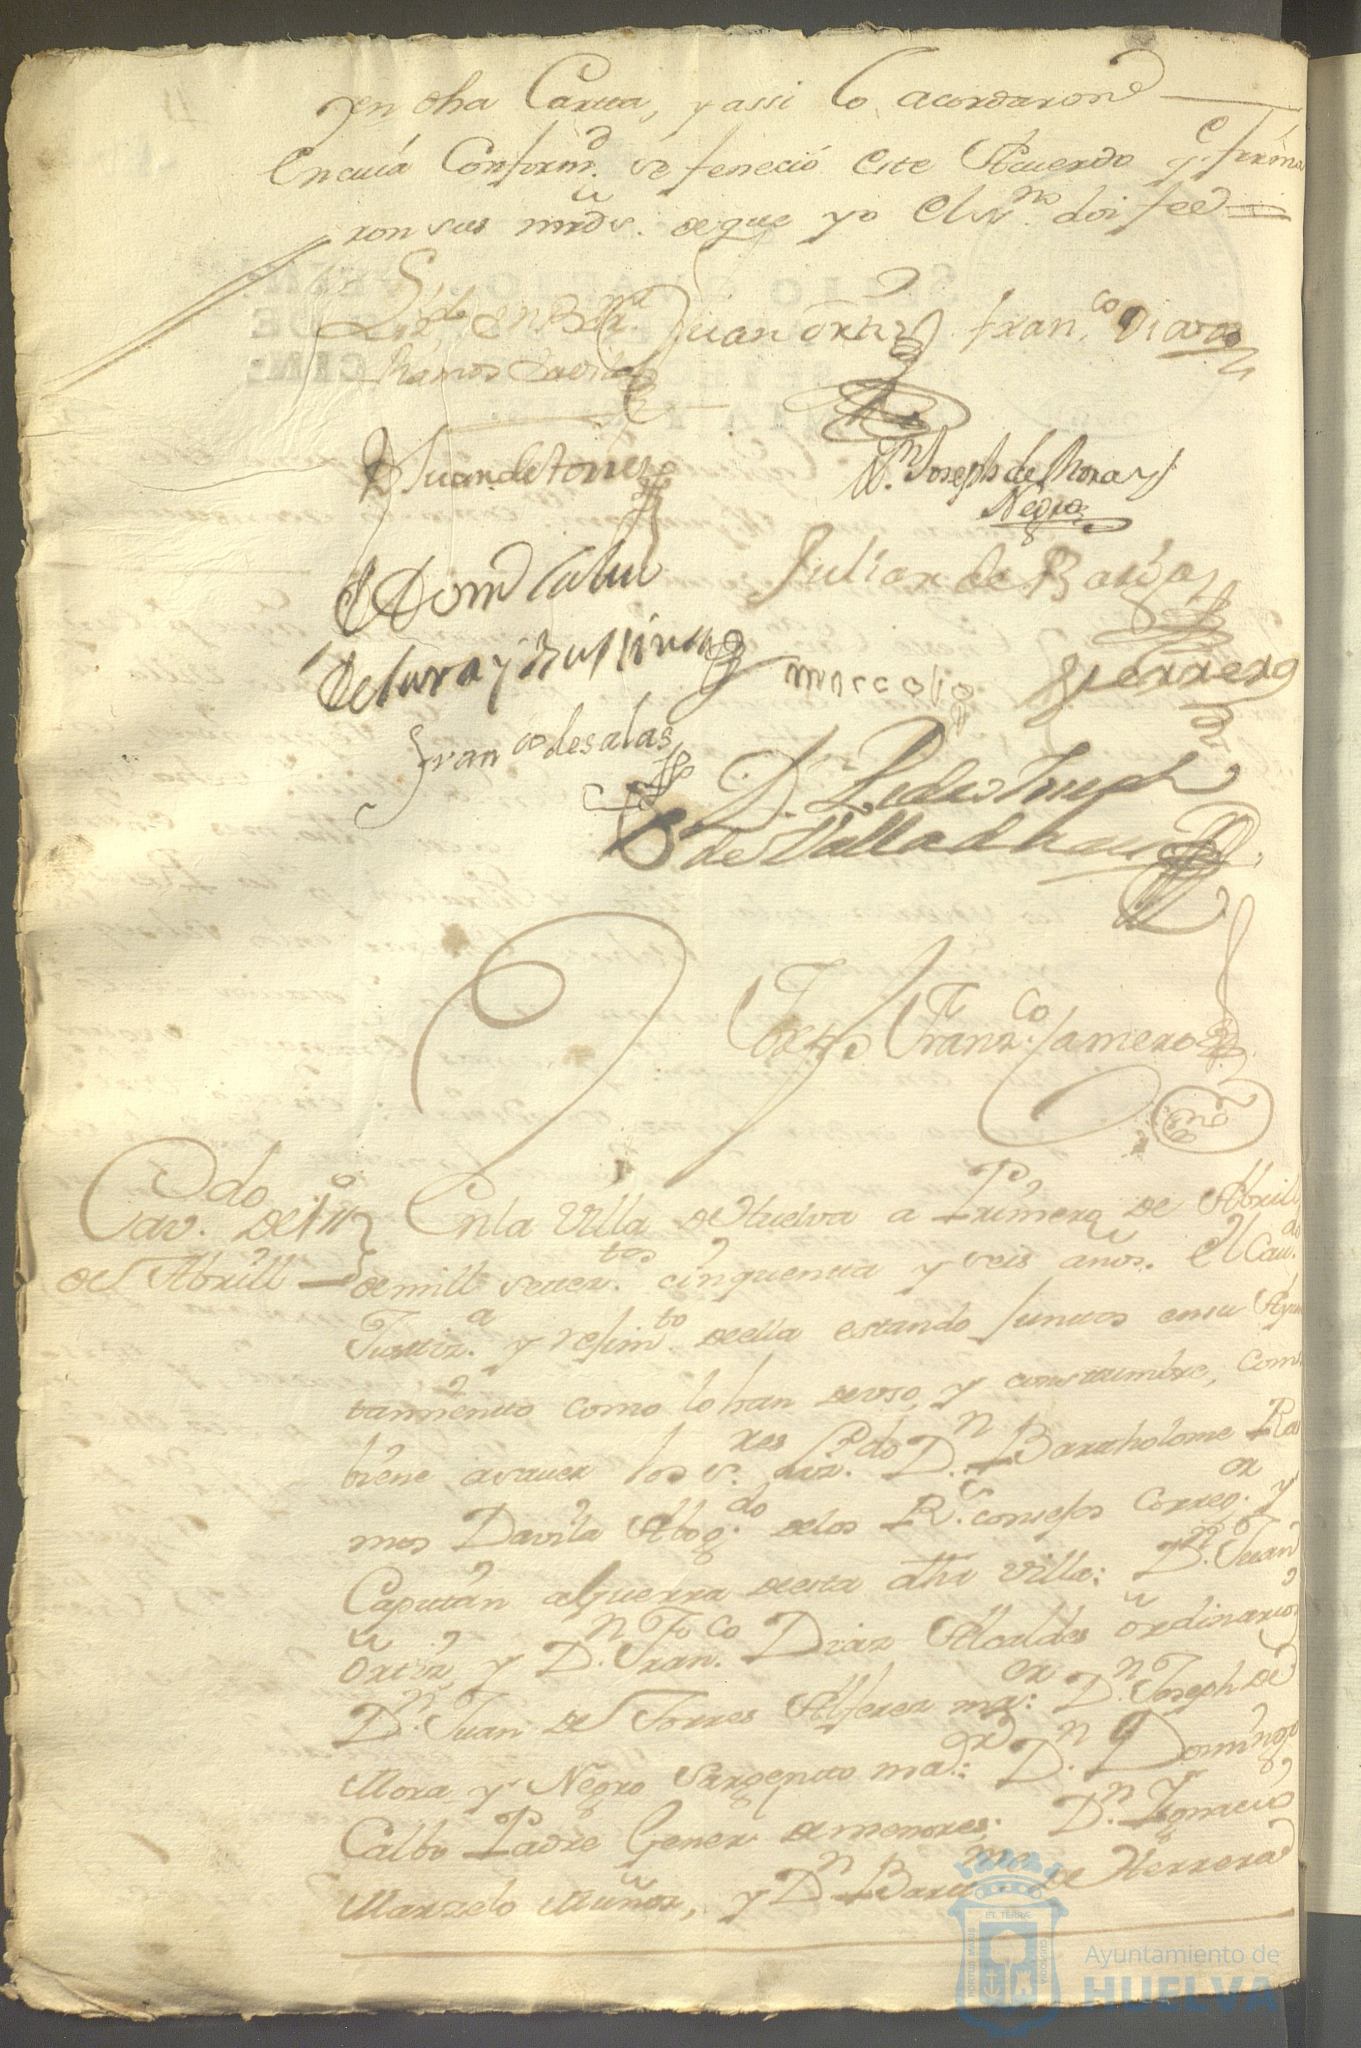 en dha Carta, y assi lo acordaron
En cuia Conformd. se feneció este Acuerdo y firma
ron sus mrds. de que yo el ssno. doi fee
Lizdo. Dn. Bme. Juan Ortiz Franco. Diaz
Ramos Davila
Dn. Juan de Torres Dn. Joseph de Mora y
Negro
Dn. Domo. Calbo Julian de
Marcelo Herrera
Franco de salas
Dn. Pedro Joseph
de Valladares
Franzco. Camero
ssno
Cavdo. de 1o. En la Villa de Huelva a Primero de Abrill
de Abrill de mill setectos. cinquenta y seis años. el Cavdo.
Justiza. y rejimto. de ella estando juntos en su Ayun
tamiento como lo han de uso, y constumbre, com
biene a saver los sres. Lizdo. Dn. Bartholome Ra
mos Davila Abogdo. de los Rs. consejos Corregor. y
Capitan a guerra de esta dha villa: Dn. Juan
Ortiz, y Dn. Franco. Diaz Alcaldes ordinarios
Dn. Juan de Torres Alferez maor: Dn. Joseph de
Mora y Negro Sargento maor: Dn. Domingo
Calbo Padre Gener de menores: Dn. Ignacio
Marzelo Muñoz, y Dn. Bartme. de Herrera
PORTUS MARIS
ET TERRAE
CUSTODIA
Ayuntamiento de
HUELVA